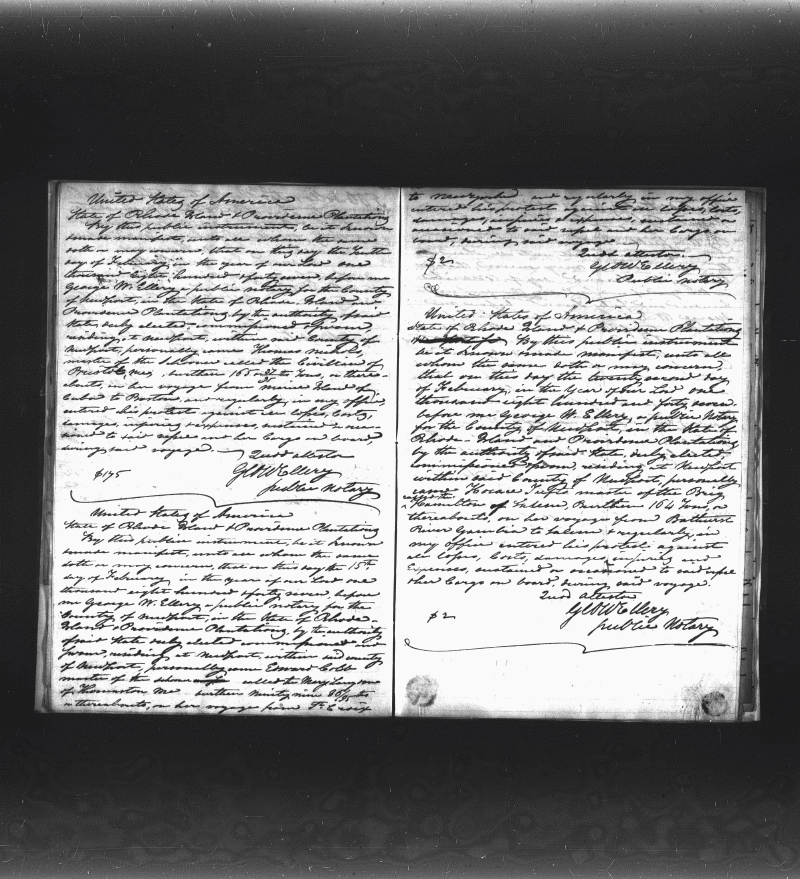 United States of America
State of Rhode Island & Providence Plantations
By this public instrument, be it known
made manifest, unto all whom the same
doth or may concern, that on this day the
day of February, in the year of our Lord one
thousand eight hundred & forty seven, before me
George W. Ellery, a public notary for the County
of Newport, in the State of Rhode Island and
Providence Plantations by the authority of said
State, duly elected, commissioned & sworn,
residing at Newport, within said County of
Newport, personally came Thomas Nichols,
master of the Schooner called the of
Bristol Me, burthen 165 Tons, or there-
abouts, on her voyage from Island of
Cuba to Boston, and regularly, in my office,
entered his protest against all losses, Costs,
damages, injuries & expenses, sustained or occa-
sioned to said vessel and her Cargo on board,
during said voyage.
Quod attestor
$1.75 Geo W Ellery
public Notary
United States of America
State of Rhode Island & Providence Plantations
By this public instrument, be it known
made manifest, unto all whom the same
doth or may concern, that on this day the 15th
day of February, in the year of our Lord one
thousand eight hundred & forty seven, before
me George W. Ellery a public notary for the
County of Newport, in the State of Rhode-
Island & Providence Plantations, by the authority
of said State duly elected commissioned and
sworn, residing at Newport, within said county
of Newport, personally came Edward Cobb
master of the schooner called the Mary
of Thomaston Me burthen ninety nine
or thereabouts, on her voyage from St Croix
to and regularly, in my office
entered his protest against all losses, Costs,
damages, injuries & expenses, sustained or
occasioned to said vessel and her Cargo on
board, during said voyage
Quod attestor
$2 Geo W Ellery
Public Notary
United States of America
State of Rhode Island & Providence Plantations
By this public instrument
be it known made manifest, unto all
whom the same doth or may concern,
that on this day the twenty second day
of February, in the year of our Lord one
thousand eight hundred and forty seven
before me George W. Ellery, a public Notary
for the County of Newport, in the State of
Rhode-Island and Providence Plantations
by the authority of said State, duly elected,
commissioned & sworn, residing at Newport
within said County of Newport, personally
came Horace master of the Brig
called the
Hamilton of Salem, Burthen 164 Tons, or
thereabouts, on her voyage from Bathurst
River Gambia to Salem & regularly, in
my office entered his protest against
all losses, Costs, damages, injuries and
Expenses, sustained or occasioned to said vessel
& her Cargo on board, during said voyage.
Quod attestor
$2 Geo W Ellery
public Notary